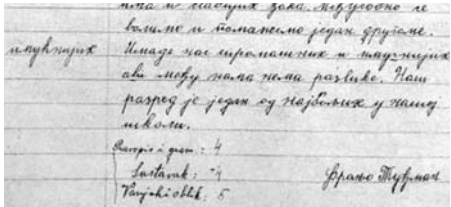 има и слабијих ђака. међусобно се
волимо и помажемо један другоме.
имућнијих
Имаде нас сиромашних и имућнијих
али међу нама нема разлике. Наш
разред је један од најбољих у нашој
школи.
Pravopis i gram.: 4
Sastavak: 4
Vanjski oblik: 5
Фрањо Туђман